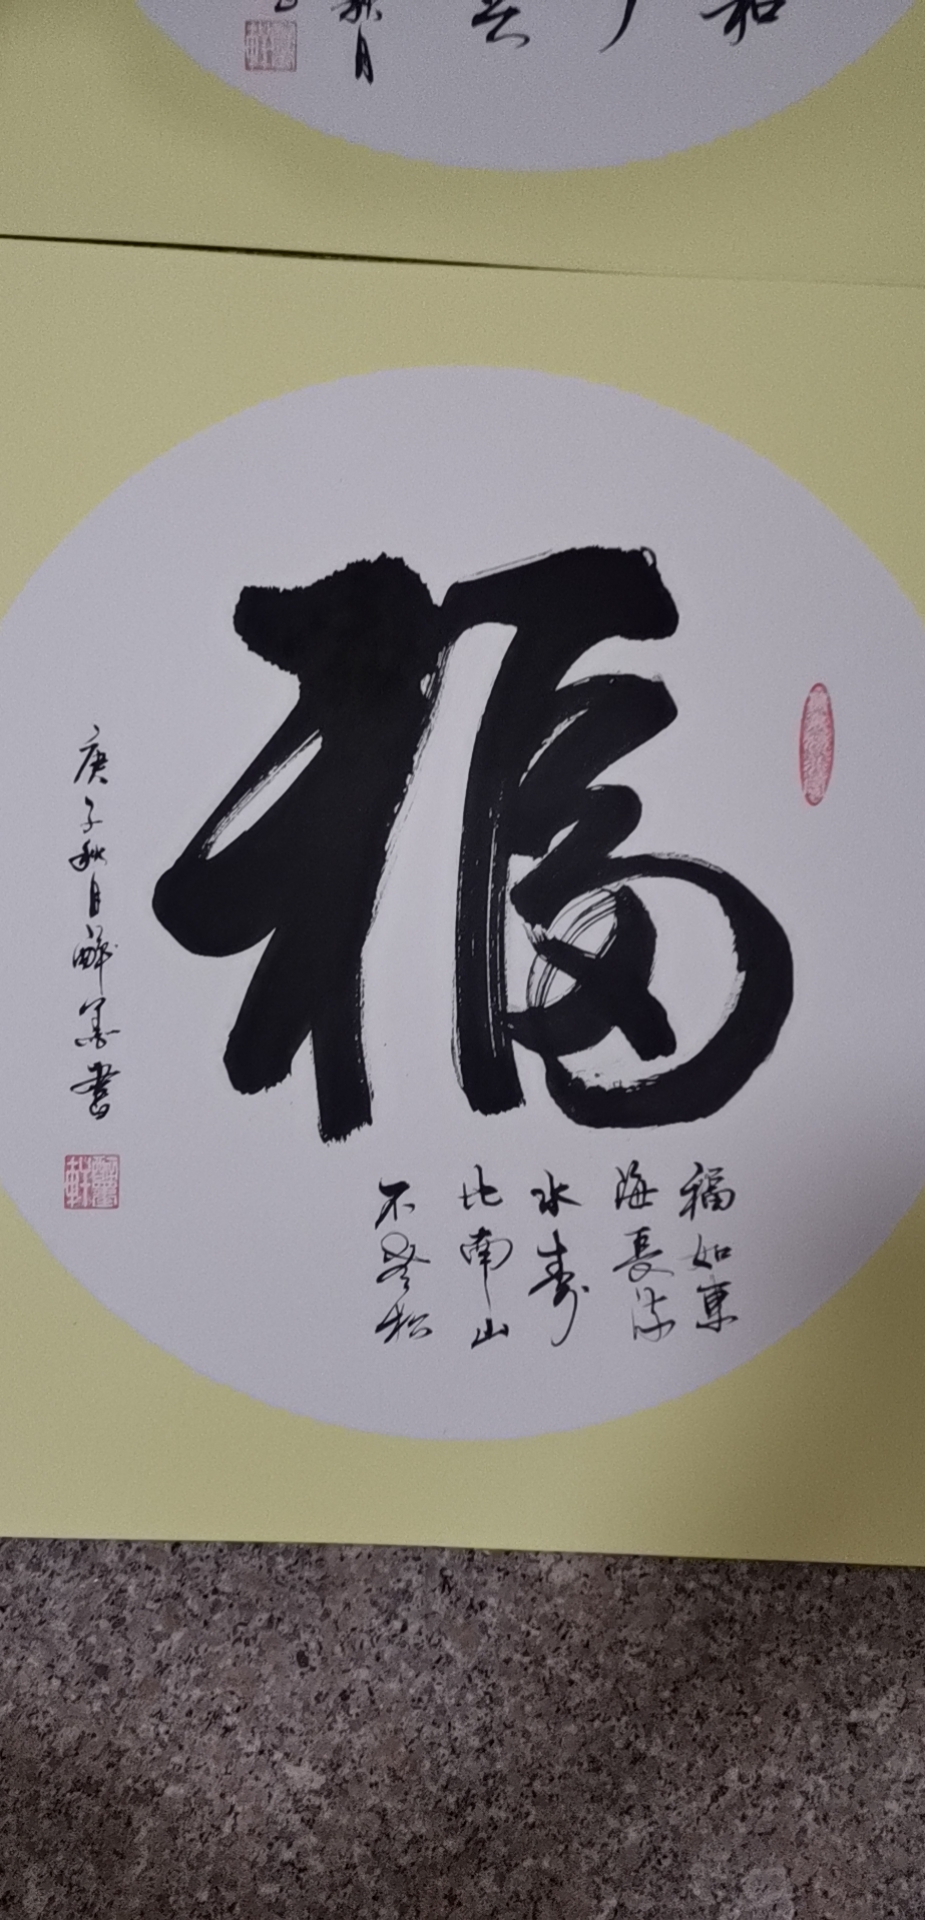 秋月
和
福
福如東
海長流
水壽
比南山
不老松
庚子秋月醉墨書